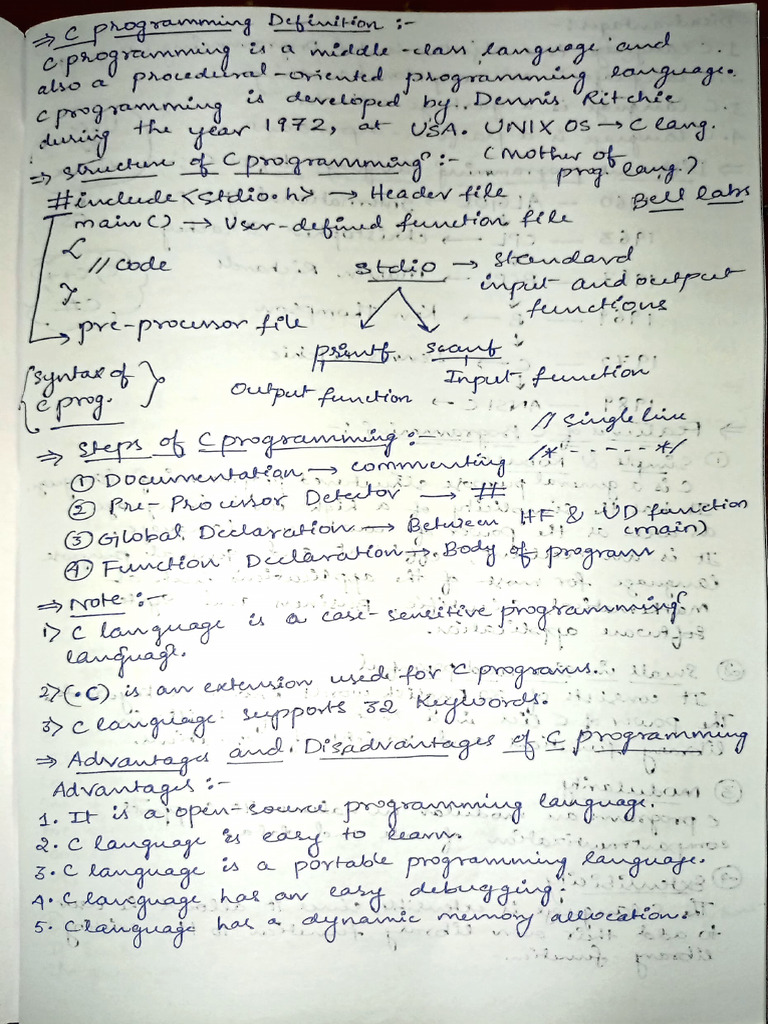 ⇒ C programming Definition :-
C programming is a middle-class language and
also a procedural-oriented programming language.
C programming is developed by Dennis Ritchie
during the year 1972, at USA. UNIX OS → C lang.
⇒ Structure of C programming :- (Mother of
prog. lang.)
#include <stdio.h> → Header file Bell labs
main() → User-defined function file
{
// code
stdio → standard
input and output
functions
}
pre-processor file
printf scanf
{Syntax of
C prog.}
Output function Input function
⇒ Steps of C programming :- // Single line
① Documentation → commenting /*-----*/
② Pre-Processor Detector → ##
③ Global Declaration → Between HF & UD function
(main)
④ Function Declaration → Body of program
⇒ Note :-
1> C language is a case-sensitive programming
language.
2> (.C) is an extension used for C programs.
3> C language supports 32 Keywords.
⇒ Advantages and Disadvantages of C programming
Advantages :-
1. It is a open-source programming language.
2. C language is easy to learn.
3. C language is a portable programming language.
4. C language has an easy debugging.
5. C language has a dynamic memory allocation.